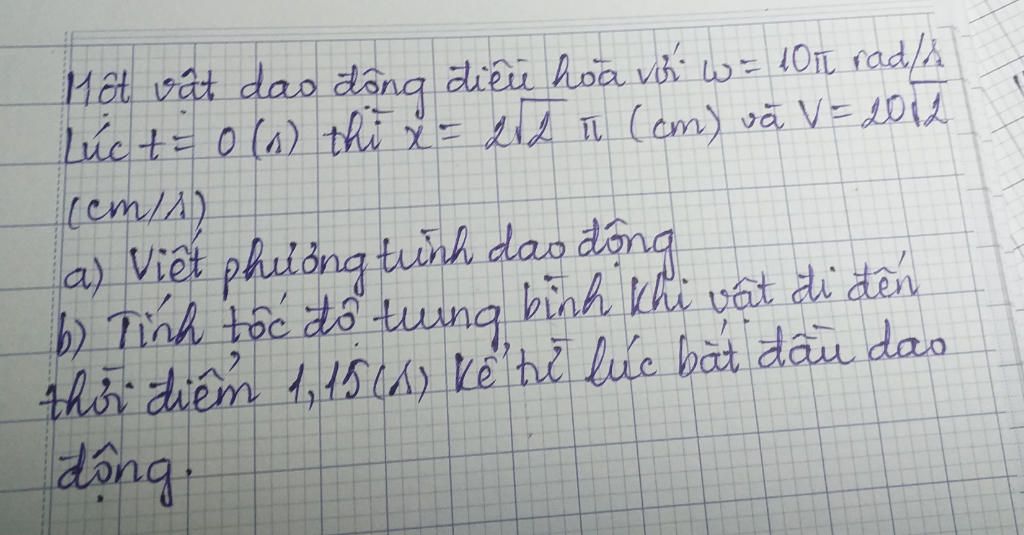 Một vật dao động điều hoà với ω = 10π rad/s
Lúc t = 0 (s) thì x = 2√2 π (cm) và V = 20√2
(cm/s)
a) Viết phương trình dao động
b) Tính tốc độ trung bình khi vật đi đến
thời điểm 1,15(s) kể từ lúc bắt đầu dao
động.